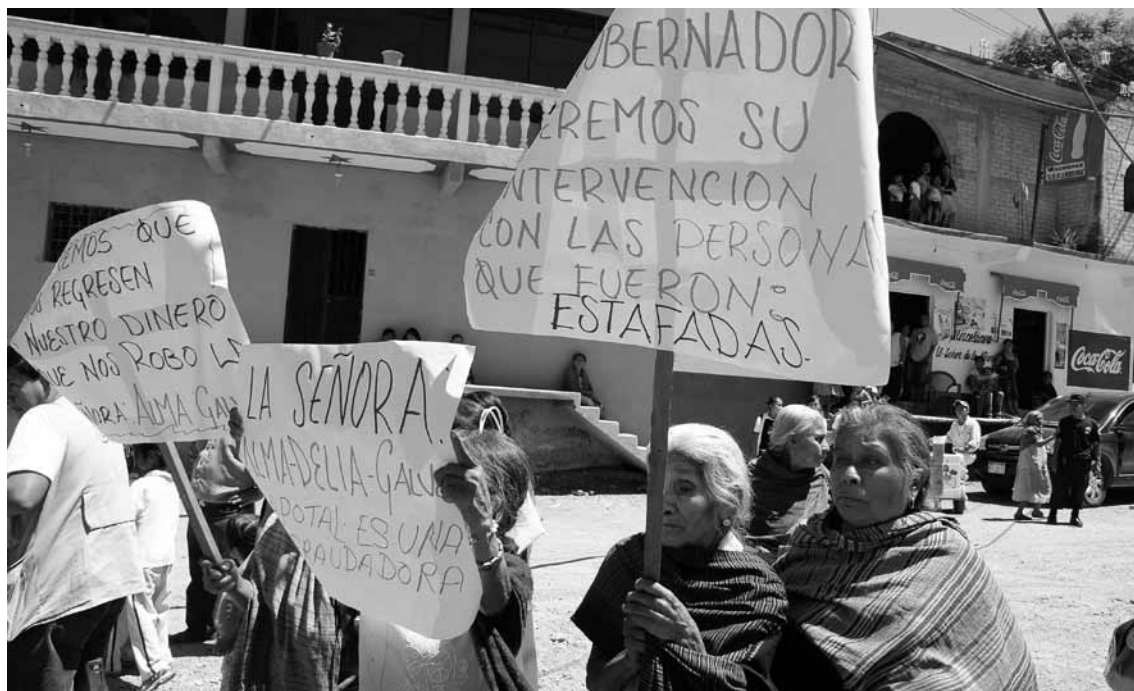 EMOS QUE
REGRESEN
NUESTRO DINERO
UE NOS ROBO LA
ÑORA: ALMA GAL
LA SEÑORA!
ALMA-DELIA-GALV
DOTAL. ES UNA
RAUDADORA
OBERNADOR
EREMOS SU
INTERVENCION
CON LAS PERSONA
QUE FUERON:
ESTAFADAS.
Coca-Cola
Miscelanea
El Señor de
Coca-Cola